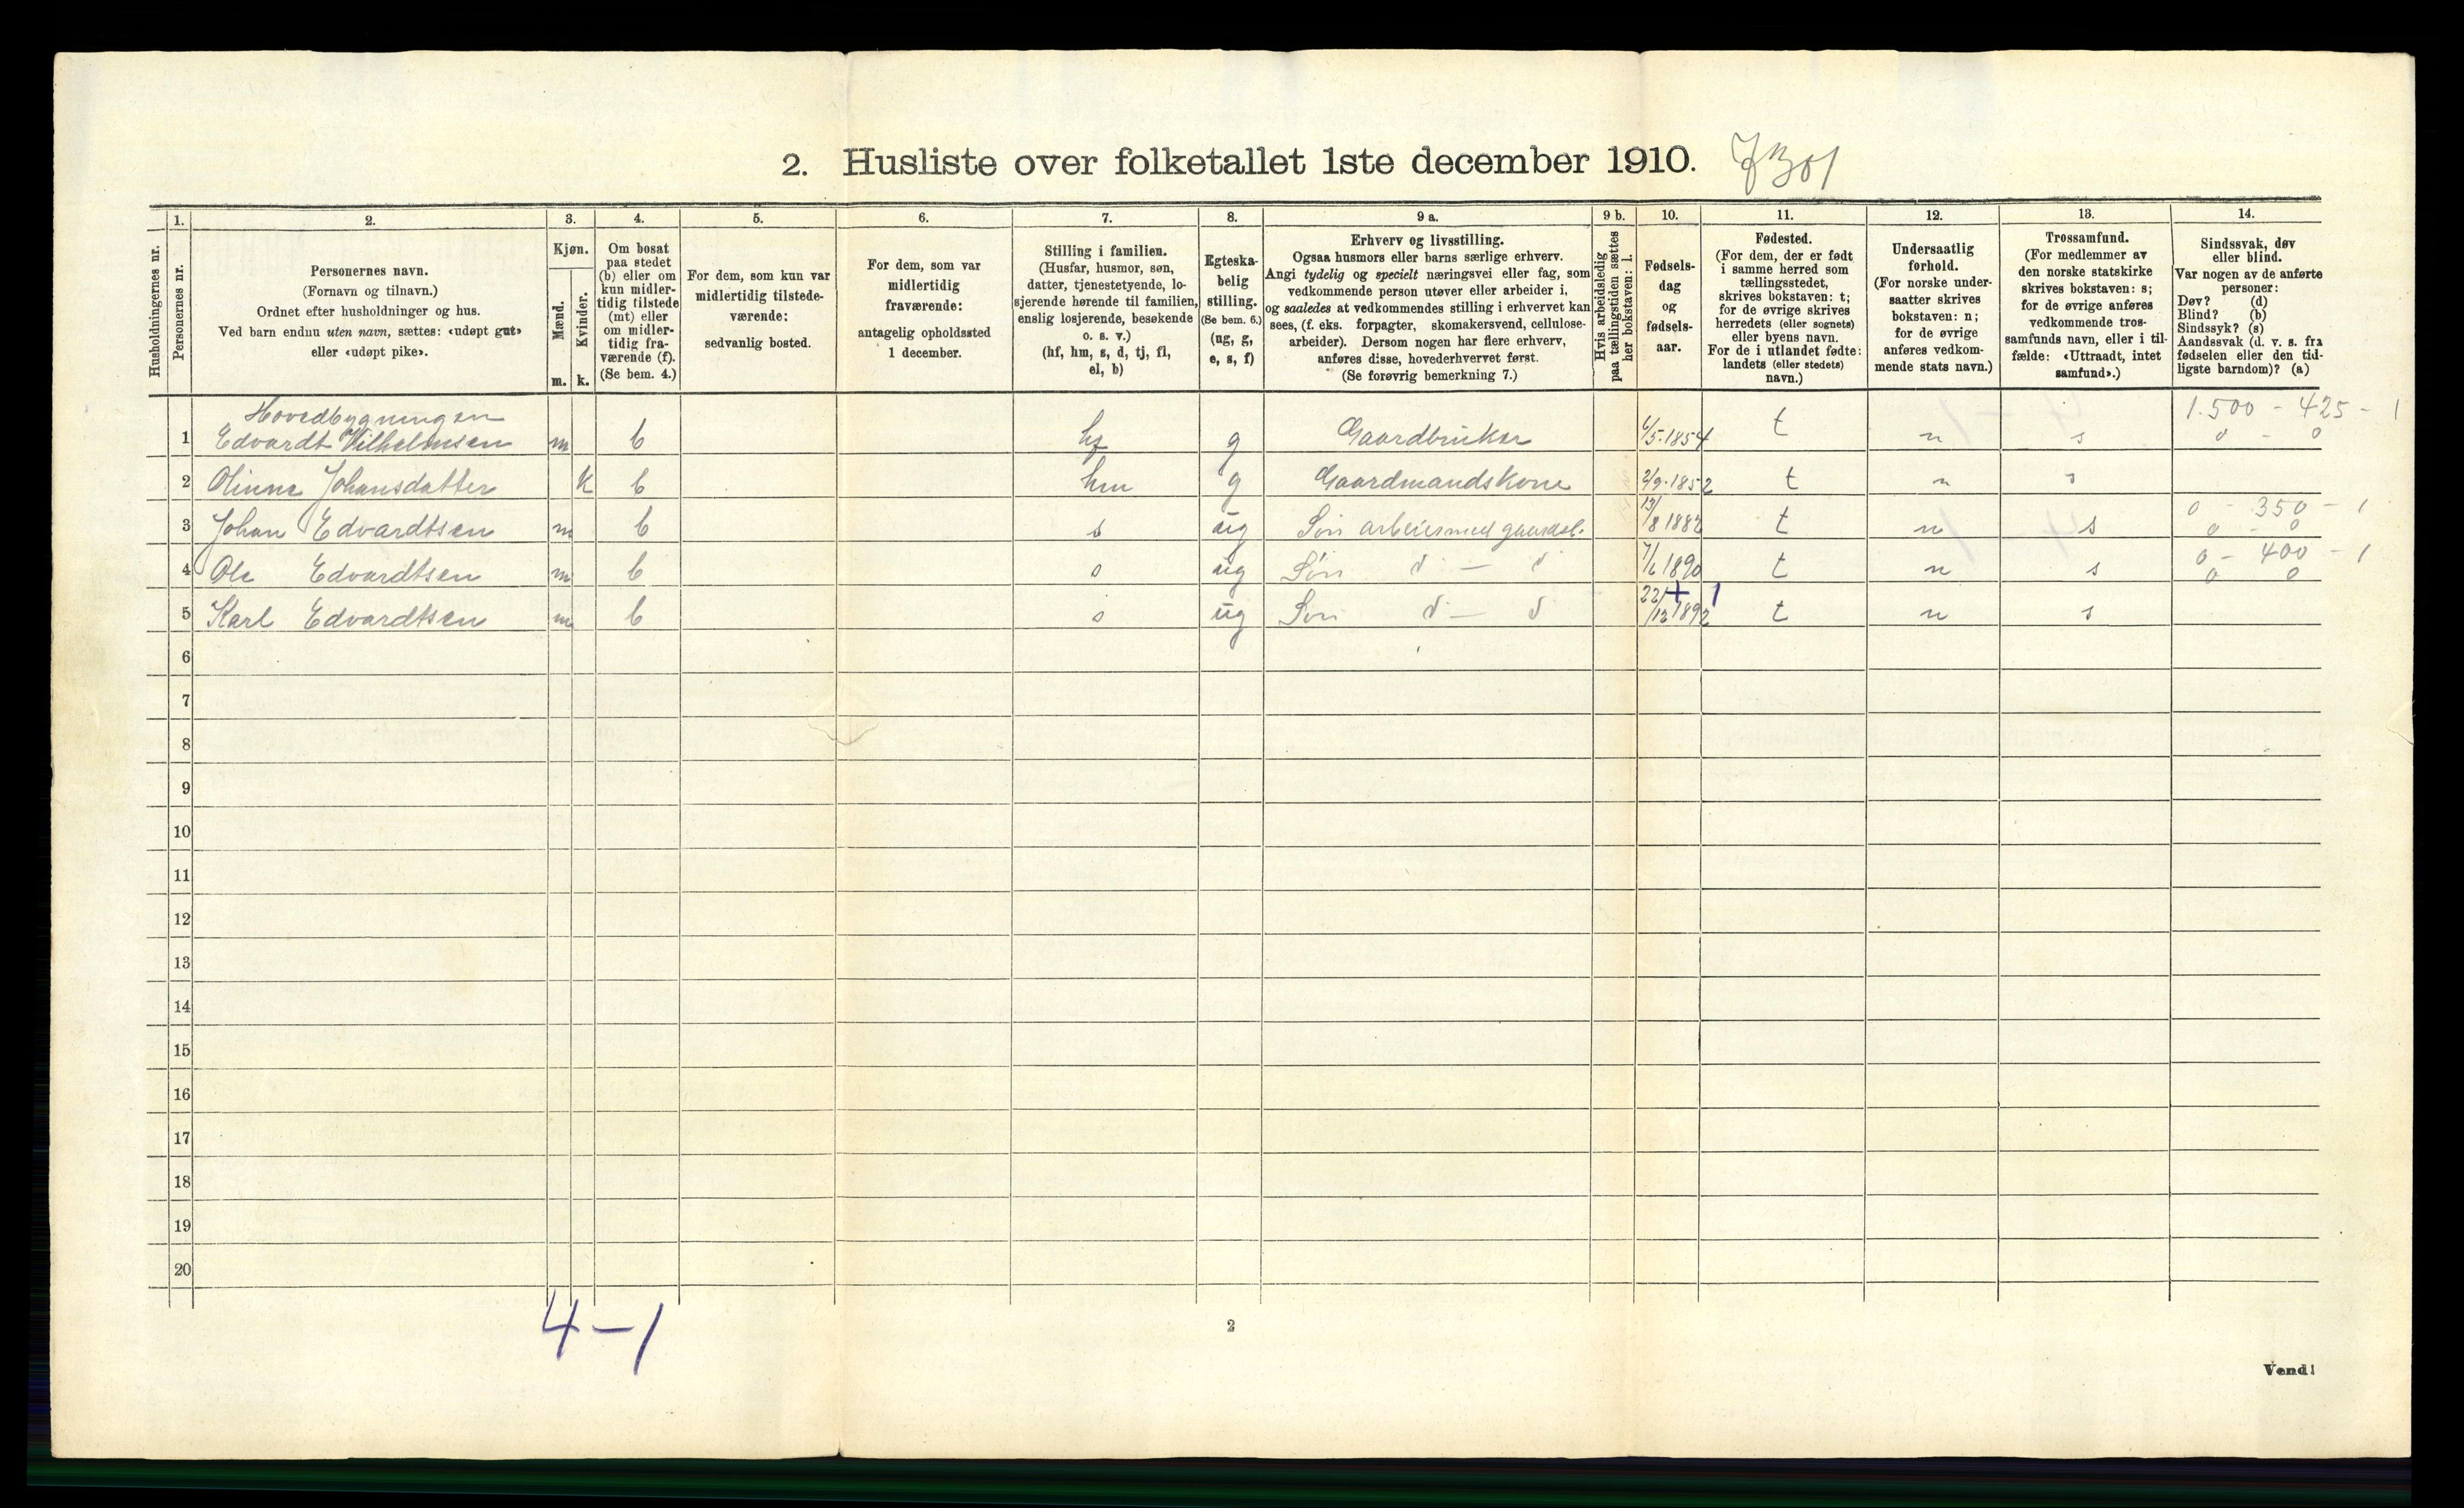 2. Husliste over folketallet 1ste december 1910. 7301
1. 2. 3. 4. 5. 6. 7. 8. 9 a. 9 b. 10. 11. 12. 13. 14.
Husholdningernes nr.
Personernes nr.
Personernes navn.
(Fornavn og tilnavn.)
Ordnet efter husholdninger og hus.
Ved barn endnu uten navn, sættes: «udøpt gut»
eller «udøpt pike».
Kjøn.
Mænd.
Kvinder.
m. k.
Om bosat
paa stedet
(b) eller om
kun midler-
tidig tilstede
(mt) eller
om midler-
tidig fra-
værende (f).
(Se bem. 4.)
For dem, som kun var
midlertidig tilstede-
værende:
sedvanlig bosted.
For dem, som var
midlertidig
fraværende:
antagelig opholdssted
1 december.
Stilling i familien.
(Husfar, husmor, søn,
datter, tjenestetyende, lo-
sjerende hørende til familien,
enslig losjerende, besøkende
o. s. v.)
(hf, hm, s, d, tj, fl,
el, b)
Egteska-
belig
stilling.
(Se bem. 6.)
(ug, g,
e, s, f)
Erhverv og livsstilling.
Ogsaa husmors eller barns særlige erhverv.
Angi tydelig og specielt næringsvei eller fag, som
vedkommende person utøver eller arbeider i,
og saaledes at vedkommendes stilling i erhvervet kan
sees, (f. eks. forpagter, skomakersvend, cellulose-
arbeider). Dersom nogen har flere erhverv,
anføres disse, hovederhvervet først.
(Se forøvrig bemerkning 7.)
Hvis arbeidsledig
paa tællingstiden sættes
her bokstaven: l.
Fødsels-
dag
og
fødsels-
aar.
Fødested.
(For dem, der er født
i samme herred som
tællingsstedet,
skrives bokstaven: t;
for de øvrige skrives
herredets (eller sognets)
eller byens navn.
For de i utlandet fødte:
landets (eller stedets)
navn.)
Undersaatlig
forhold.
(For norske under-
saatter skrives
bokstaven: n;
for de øvrige
anføres vedkom-
mende stats navn.)
Trossamfund.
(For medlemmer av
den norske statskirke
skrives bokstaven: s;
for de øvrige anføres
vedkommende tros-
samfunds navn, eller i til-
fælde: «Uttraadt, intet
samfund».)
Sindssvak, døv
eller blind.
Var nogen av de anførte
personer:
Døv? (d)
Blind? (b)
Sindssyk? (s)
Aandssvak (d. v. s. fra
fødselen eller den tid-
ligste barndom)? (a)
Hovedbygningen 1.500 - 425 - 1
1 Edvardt Vilhelmsen m b hf g Gaardbruker 6/5.1854 t n s 0 - 0
2 Olinne Johansdatter k b hm g Gaardmandskone 2/9.1852 t n s
0 - 350 - 1
3 Johan Edvardtsen m b s ug Søn arbeier med gaardsb. 13/8 1882 t n s 0 - 0
0 - 400 - 1
4 Ole Edvardtsen m b s ug Søn d — d 7/6 1890 t n s 0 0
+ 1
5 Karl Edvardtsen m b s ug Søn d — d 22/12 1892 t n s
6
7
8
9
10
11
12
13
14
15
16
17
18
19
20
4 – 1
2
Vend!